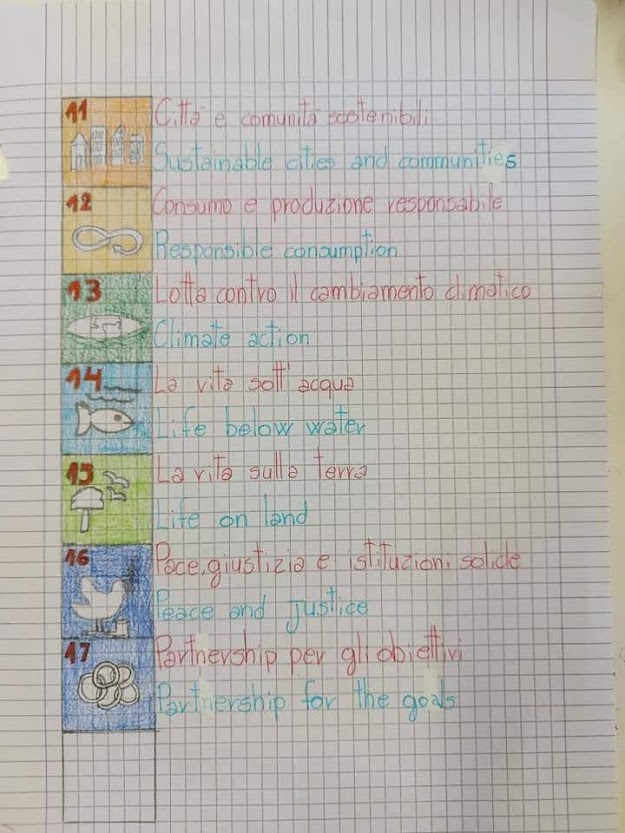 11
Città e comunità sostenibili
Sustainable cities and communities
12
Consumo e produzione responsabile
Responsible consumption
13
Lotta contro il cambiamento climatico
Climate action
14
La vita sott'acqua
Life below water
15
La vita sulla terra
Life on land
16
Pace, giustizia e istituzioni solide
Peace and justice
17
Partnership per gli obiettivi
Partnership for the goals